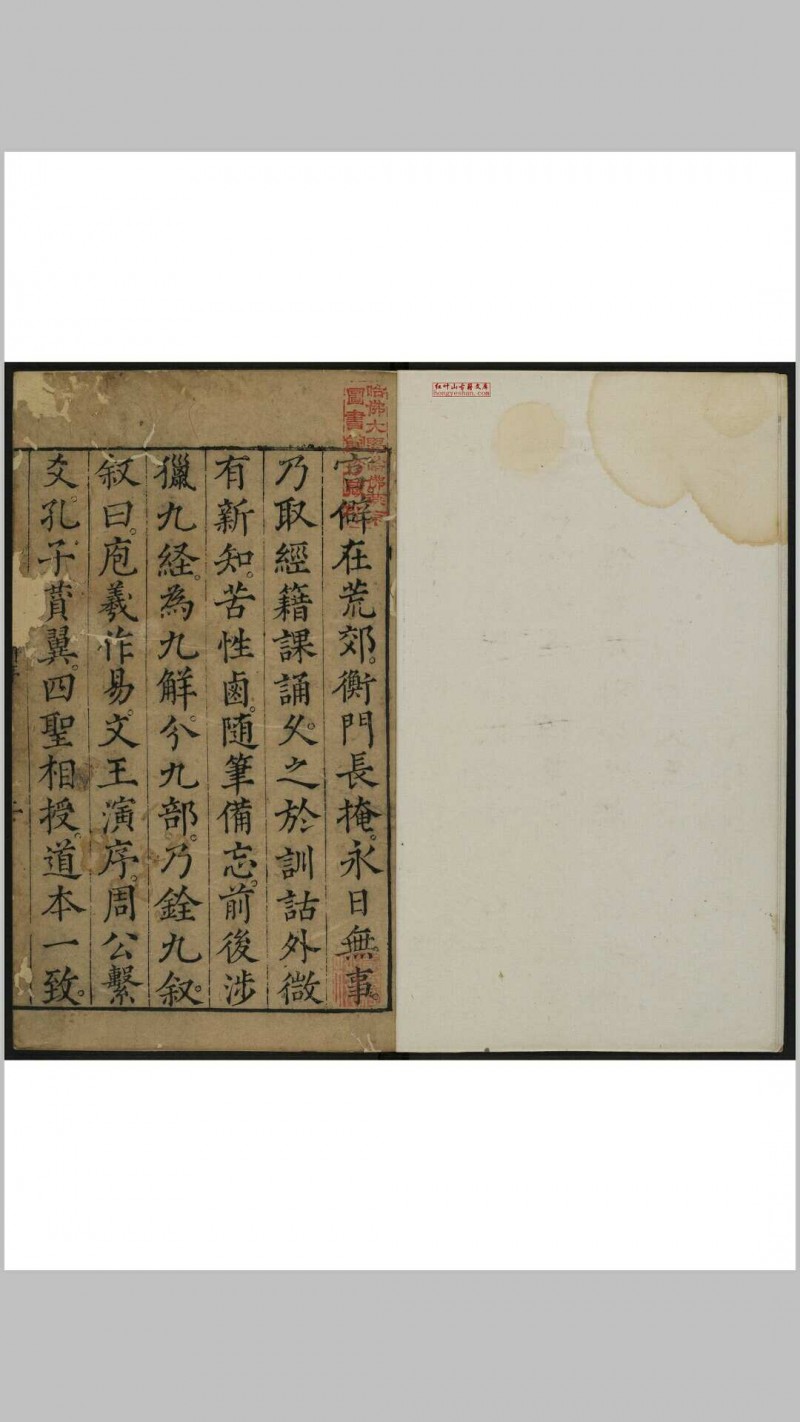 官居僻在荒郊。衡門長掩。永日無事。
乃取經籍課誦。久之於訓詁外微
有新知。苦性鹵。隨筆備忘。前後涉
獵九経。為九解。分九部。乃銓九叙。
叙曰。庖羲作易。文王演序。周公繫
爻。孔子賛翼。四聖相授。道本一致。
哈佛大
圖書
红叶山古籍文库
hongyeshan.com